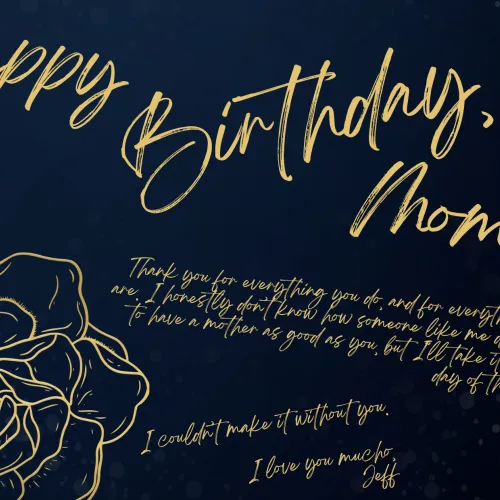 ppy
Birthday,
Mom
Thank you for everything you do, and for everyth
are. I honestly don't know how someone like me d
to have a mother as good as you, but I'll take it
day of th
I couldn't make it without you.
I love you mucho,
Jeff